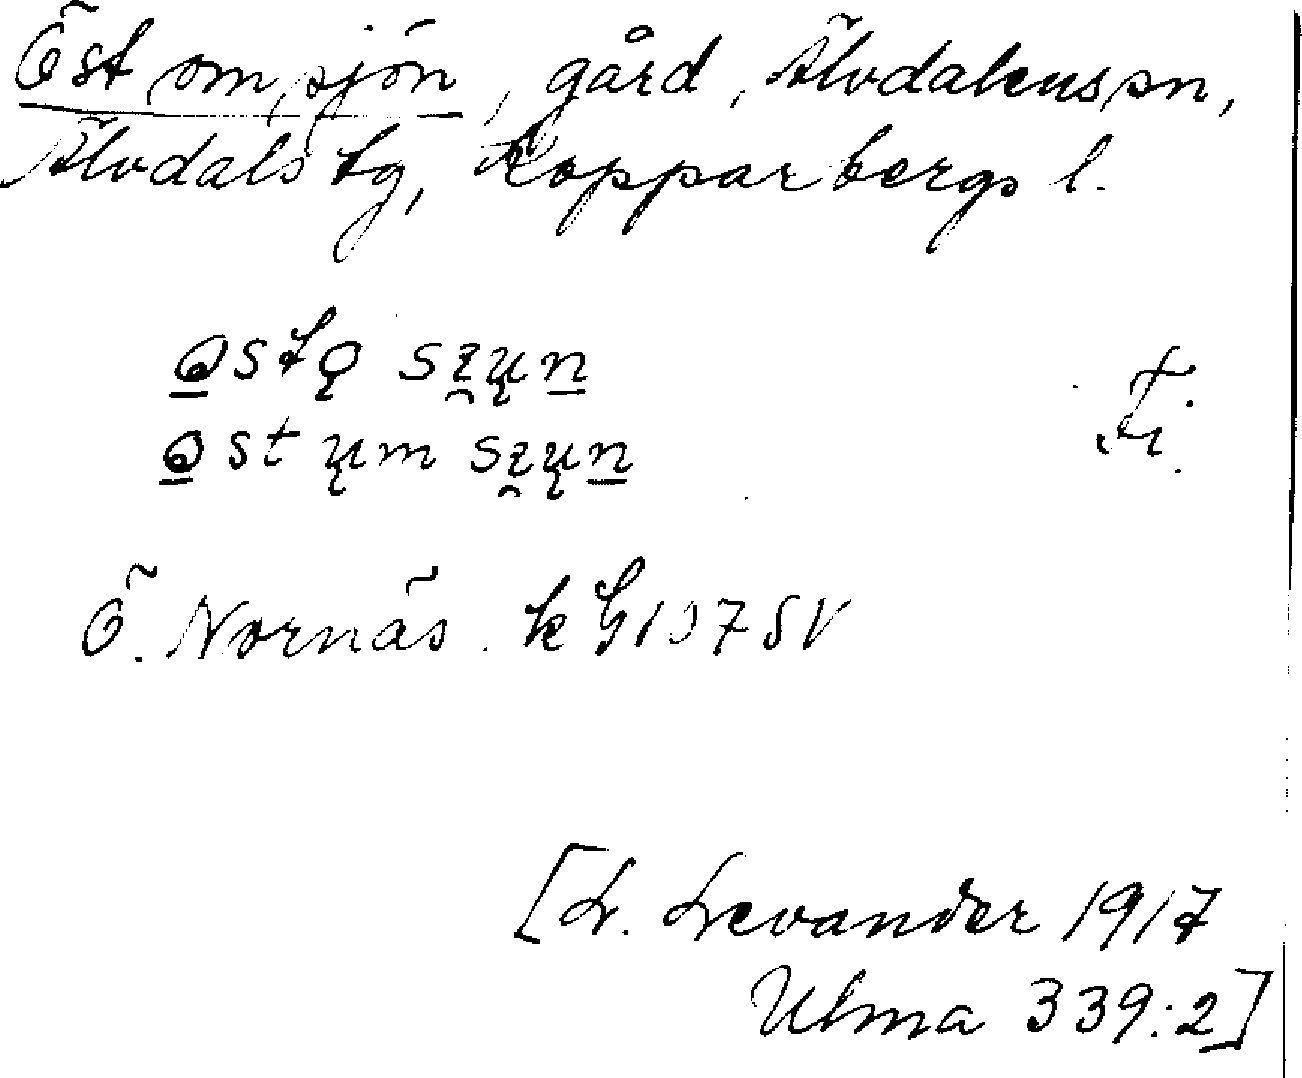 Öst om sjön, gård, Älvdalens sn,
Älvdals tg, Kopparbergs l.
ɷstǫ szųn
ɷst ųm szųn
Fi.
Ö. Nornäs. k G 107 SV
[L. Levander 1917
Ulma 339:2]